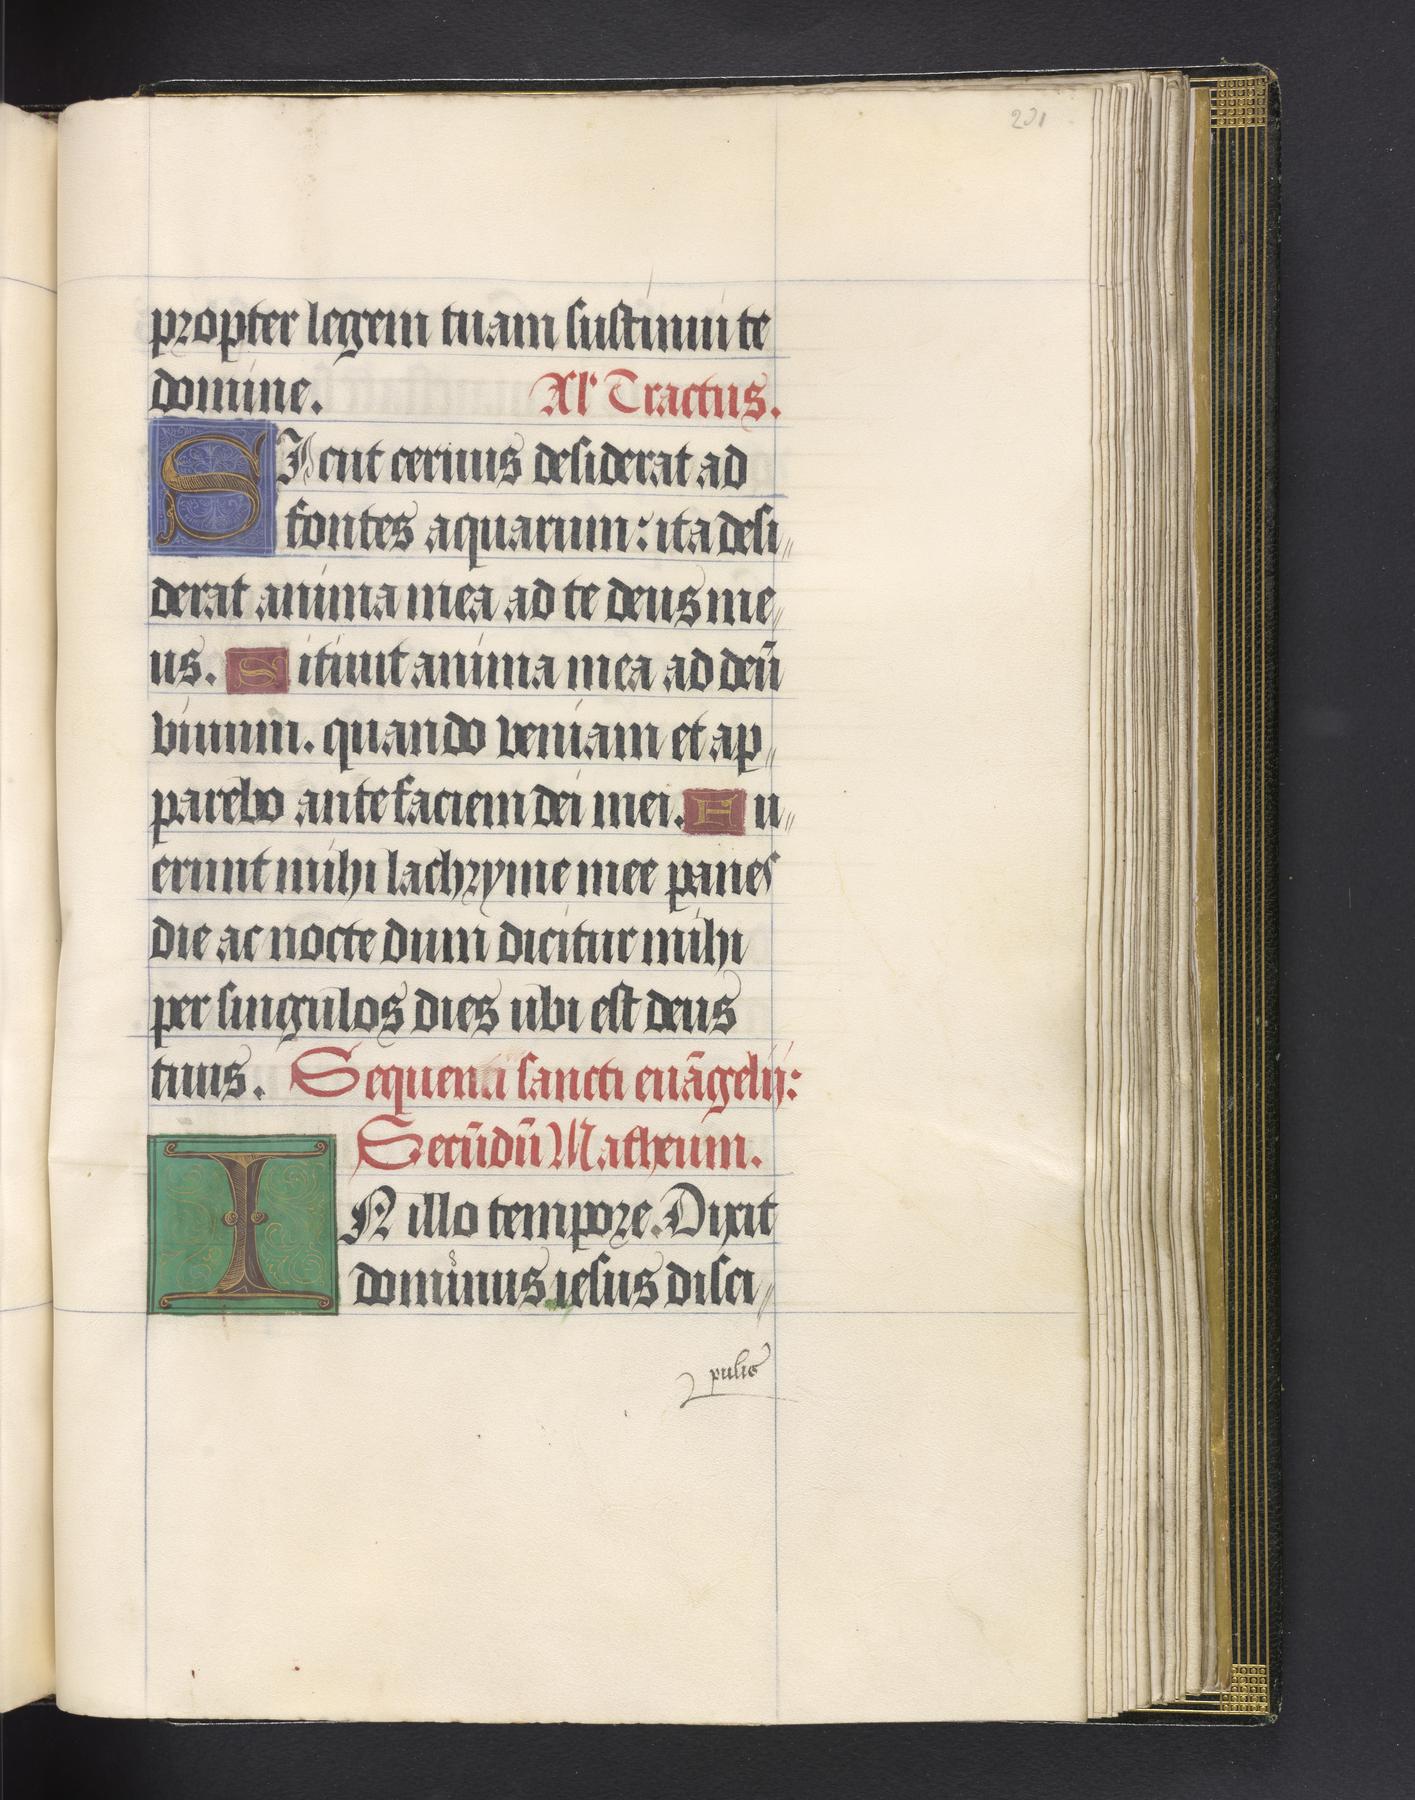 propter legem tuam sustinui te
domine. Al' Tractus.
SIcut cervus desiderat ad
fontes aquarum: ita desi//
derat anima mea ad te deus me//
us. Sitivit anima mea ad deū
vivum. quando veniam et ap//
parebo ante faciem dei mei. Fu//
erunt mihi lachryme mee panes
die ac nocte dum dicitur mihi
per singulos dies ubi est deus
tuus. Sequenti sancti euāgelij:
Secūdū Matheum.
IN illo tempore. Dixit
dominus iesus disci//
pulis